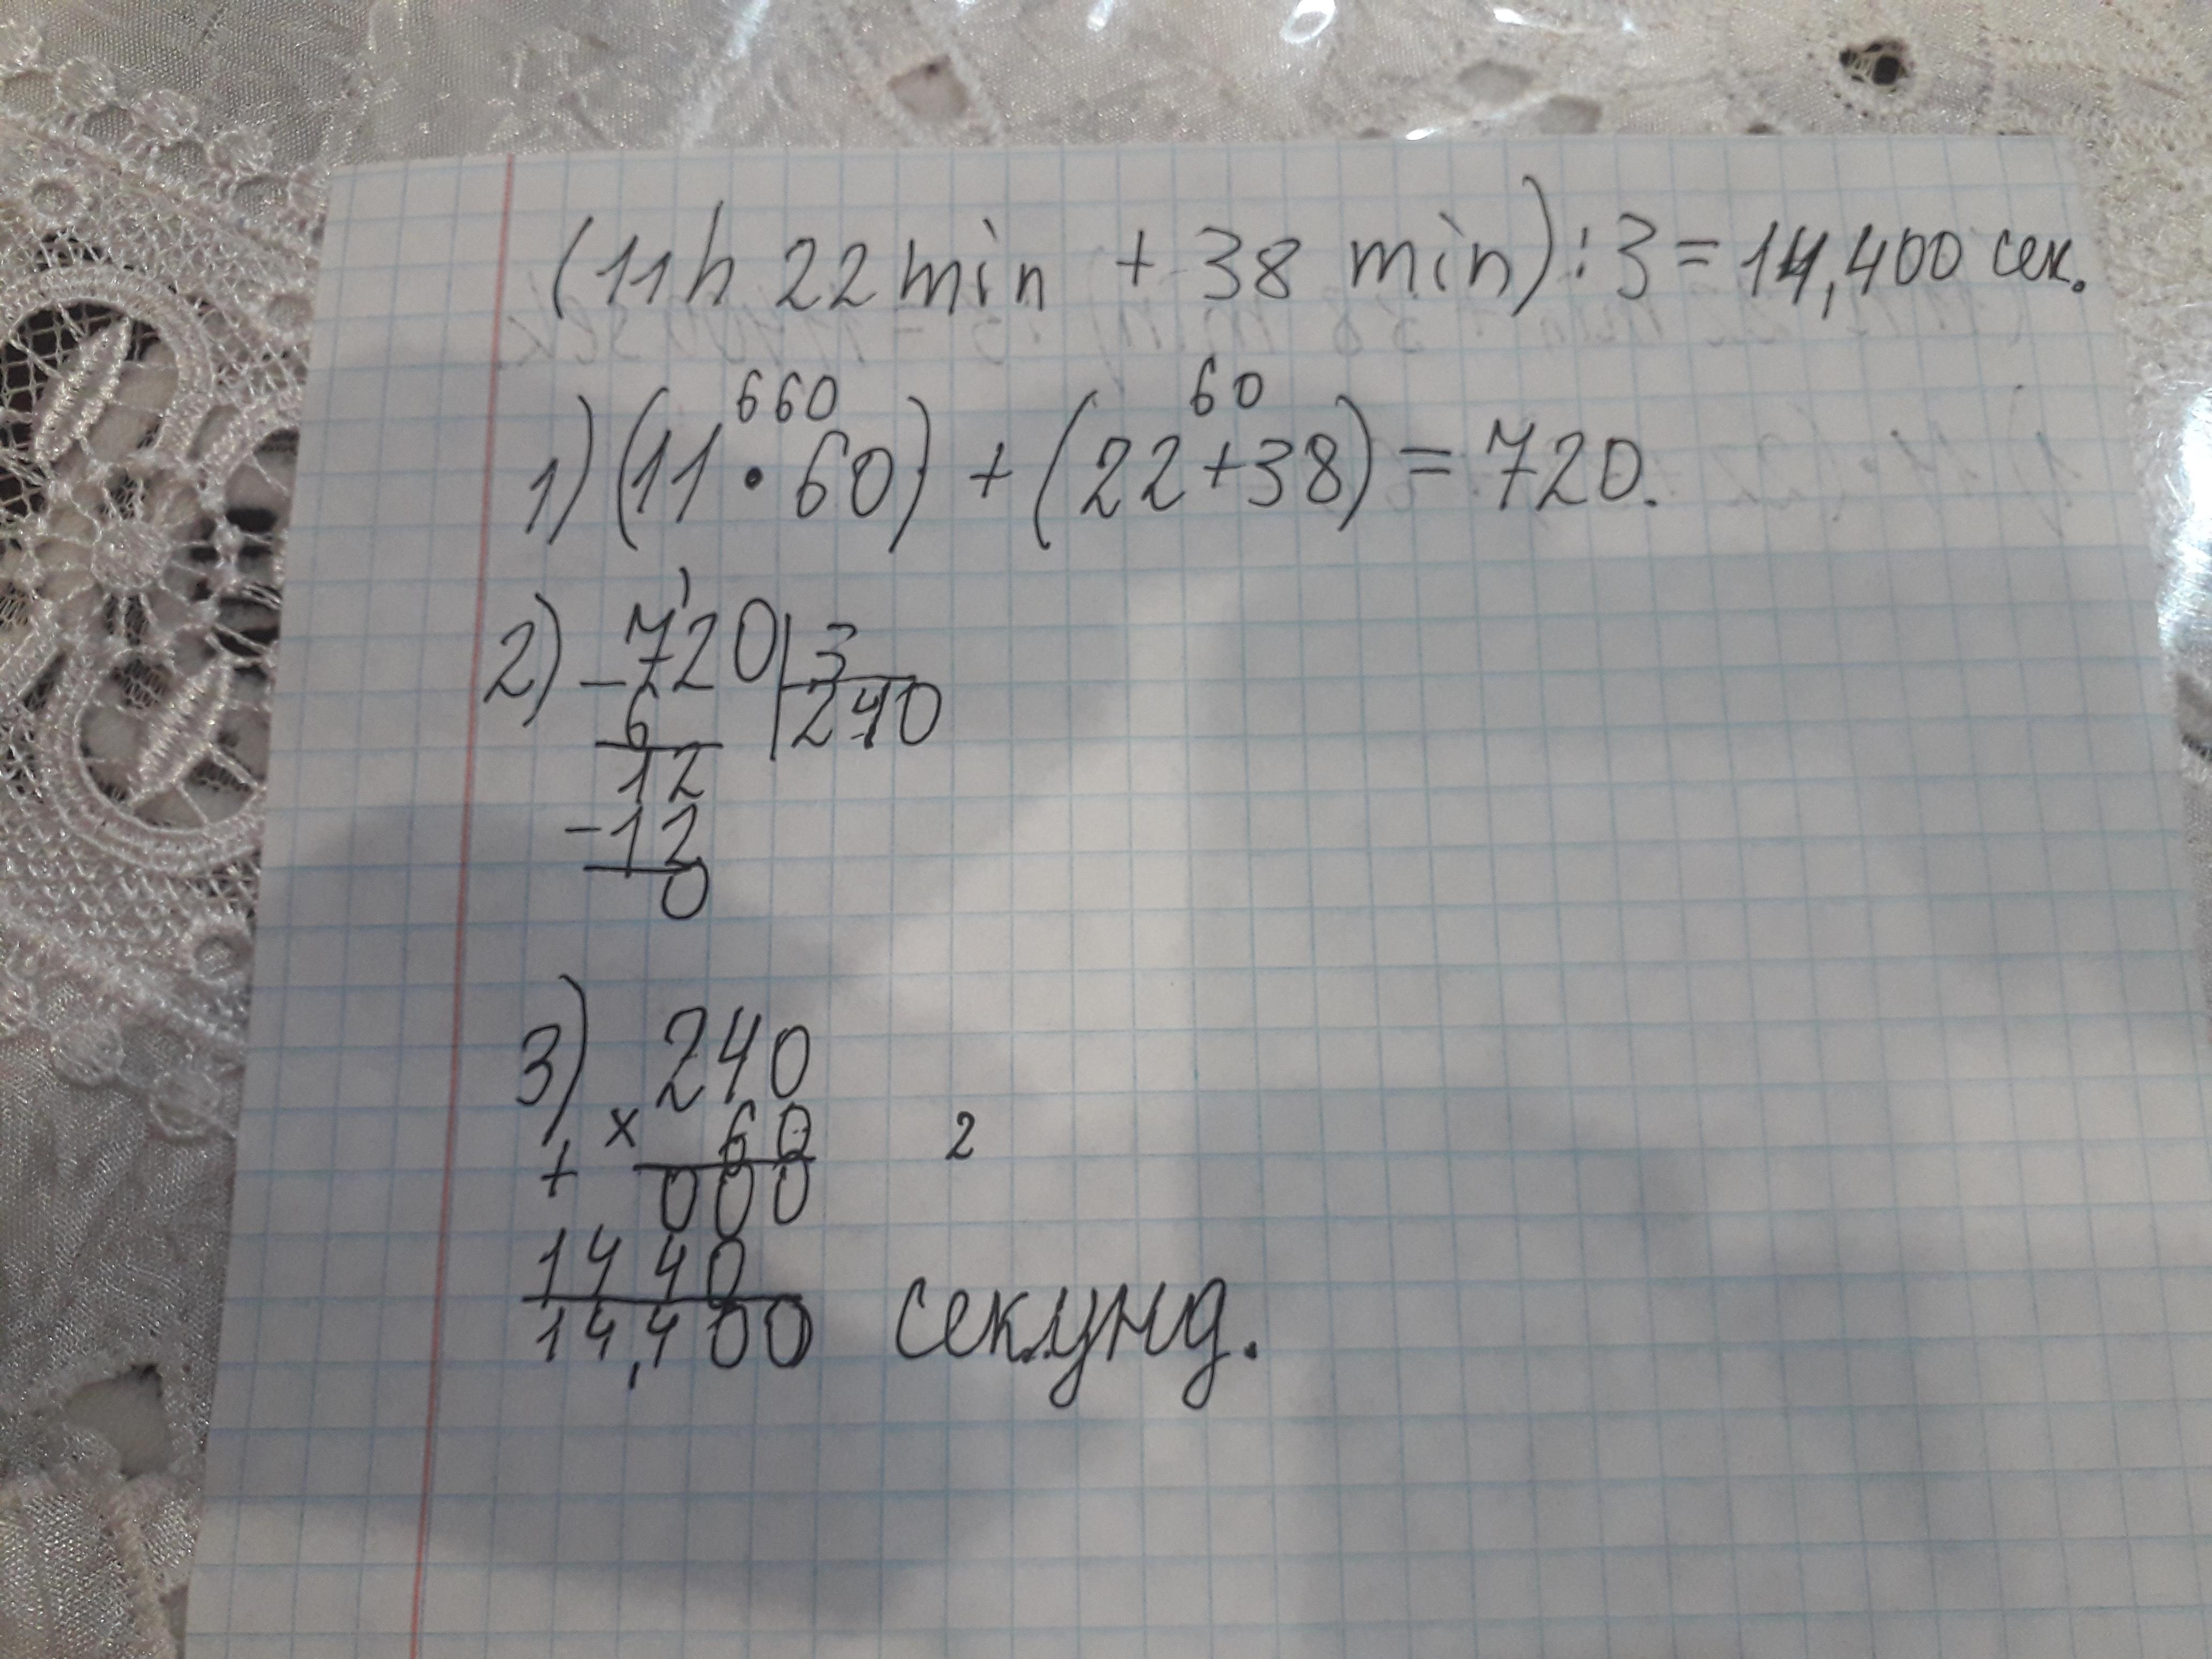 (11h 22min + 38 min):3=14,400 сек.
660 60
1) (11•60)+(22+38)=720.
2) -720|3
6 240
12
-12
0
3) 240
× 60 2
+ 000
1440
14,400 секунд.